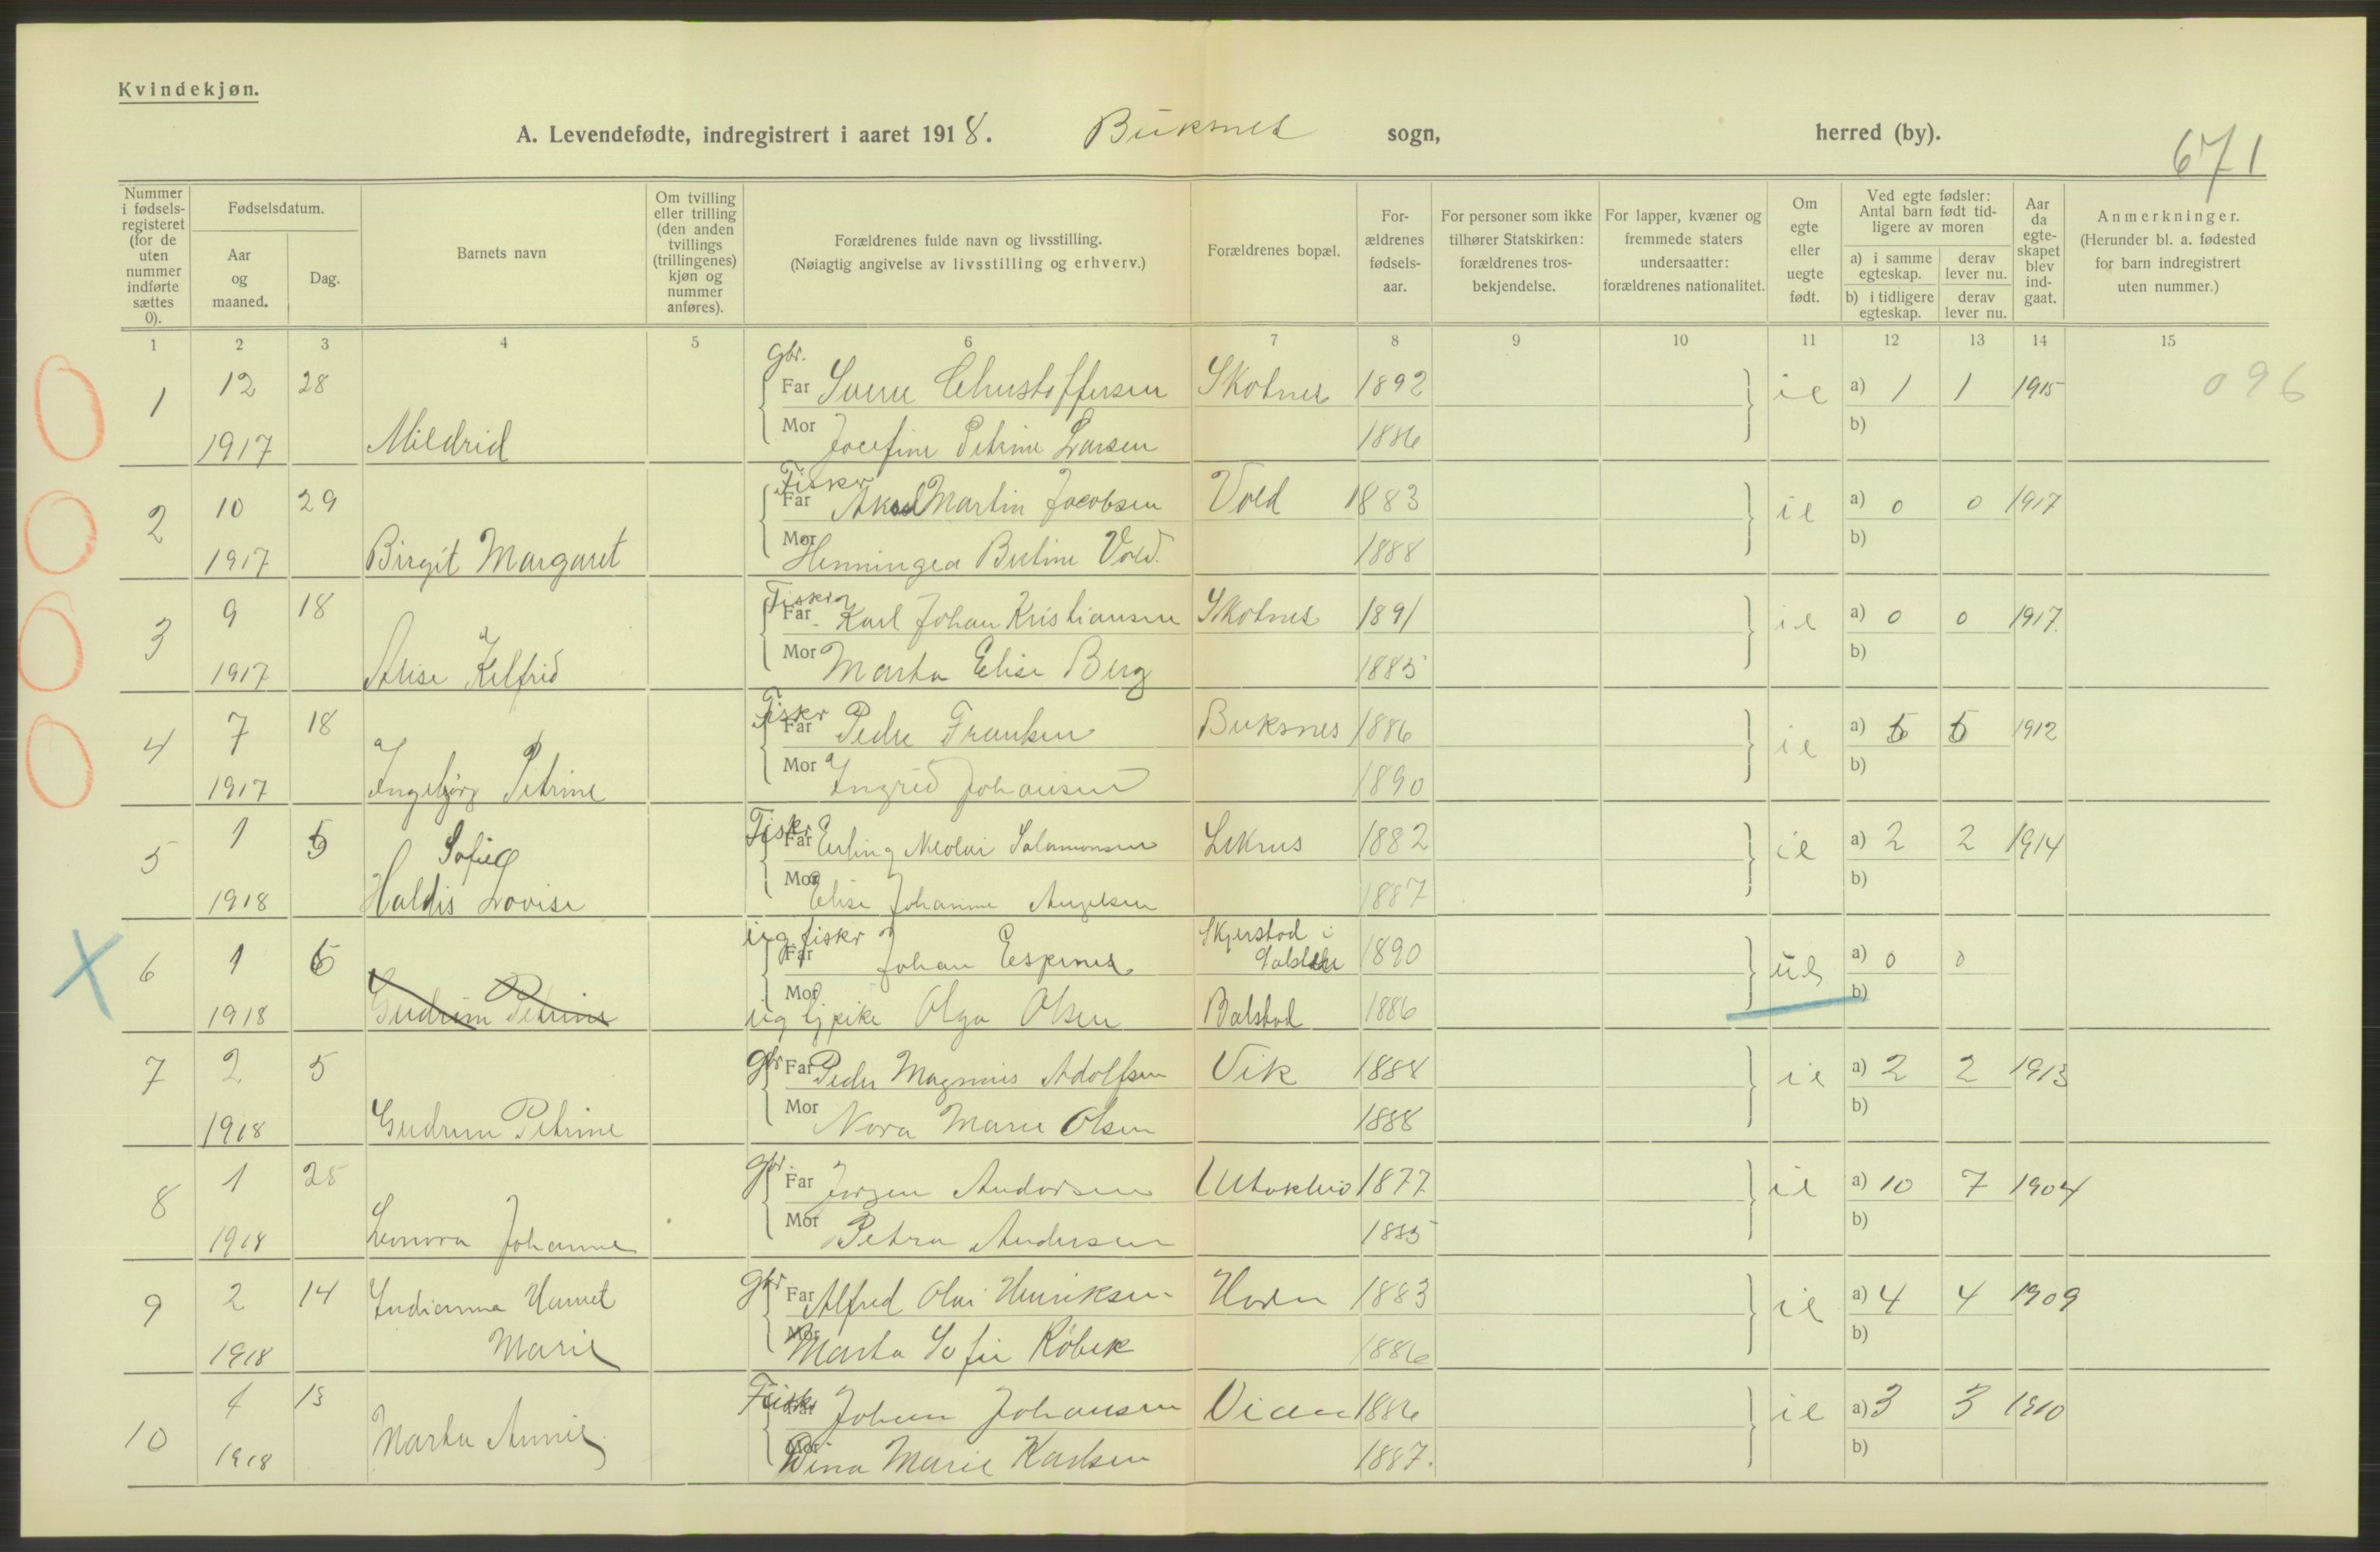 Kvindekjøn.
A. Levendefødte, indregistrert i aaret 1918. Buksnes sogn, herred (by).
671
Nummer i fødselsregisteret (for de uten nummer indførte sættes 0).
Fødselsdatum.
Aar og maaned.
Dag.
Barnets navn
Om tvilling eller trilling (den anden tvillings (trillingenes) kjøn og nummer anføres).
Forældrenes fulde navn og livsstilling.
(Nøiagtig angivelse av livsstilling og erhverv.)
Forældrenes bopæl.
For-ældrenes fødsels-aar.
For personer som ikke tilhører Statskirken: forældrenes tros-bekjendelse.
For lapper, kvæner og fremmede staters undersaatter: forældrenes nationalitet.
Om egte eller uegte født.
Ved egte fødsler: Antal barn født tid-ligere av moren
a) i samme egteskap.
derav lever nu.
b) i tidligere egteskap.
derav lever nu.
Aar da egte-skapet blev ind-gaat.
Anmerkninger.
(Herunder bl. a. fødested for barn indregistrert uten nummer.)
1 2 3 4 5 6 7 8 9 10 11 12 13 14 15
Gbr.
1 12 28 Far Christoffersen Skotnes 1892 a) 1 1 1915 096
1917 Mildrid Mor Josefine Petrine Larsen 1886 b)
Fiskr
2 10 29 Far Aksel Martin Jacobsen Vold 1883 a) 0 0 1917
1917 Birgit Margaret Mor Henningea Bertine Vold. 1888 b)
Fiskr
3 9 18 Far Karl Johan Kristiansen Skotnes 1891 a) 0 0 1917.
1917 Mor Marta Elise Berg 1885 b)
Fiskr
4 7 18 Far Peder Buksnes 1886 a) 5 5 1912
1917 Ingebjørg Petrine Mor Ingrid Johansen 1890 b)
Fiskr
5 1 5 Far Erling Nicolai Salamonsen 1882 a) 2 2 1914
Sofie
1918 Haldis Lovise Mor Elise Johanne Angelsen 1887 b)
ug fiskr
6 1 6 Far Johan Espenes Skjerstad i 1890 a) 0 0
1918 Gudrun Petrine Mor ug Olga Olsen Balstad 1886 b)
Gbr
7 2 5 Far Peder Magnus Adolfsen Vik 1884 a) 2 2 1913
1918 Gudrun Petrine Mor Nora Marie Olsen 1888 b)
Gbr.
8 1 25 Far Jørgen Andorsen 1877 a) 10 7 1904
1918 Leonora Johanne Mor Petra Andersen 1885 b)
Gbr
9 2 14 Far Alfred Olai Henriksen Horn 1883 a) 4 4 1909
1918 Marie Mor Marta Sofie Röbek 1886 b)
Fisker
10 13 Far Johan Johansen 1886 a) 3 3 1910
1918 Marta Annie Mor Marie Karlsen 1887. b)